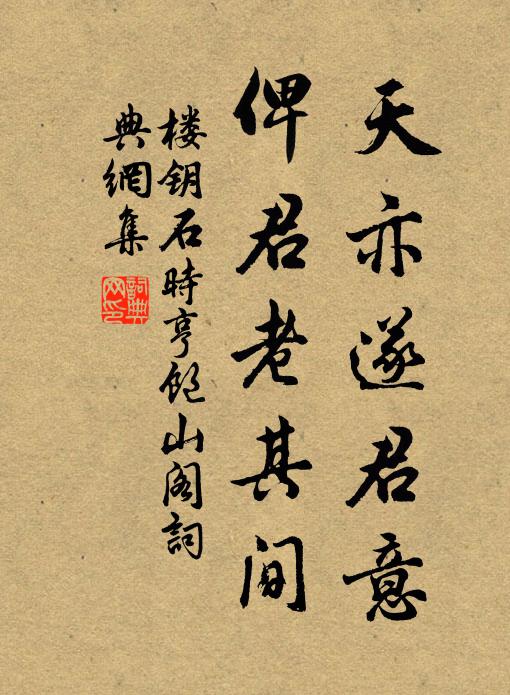 天亦遂君意
俾君老其间
楼钥石時亨飽山阁詞
典網集
詞典
网印